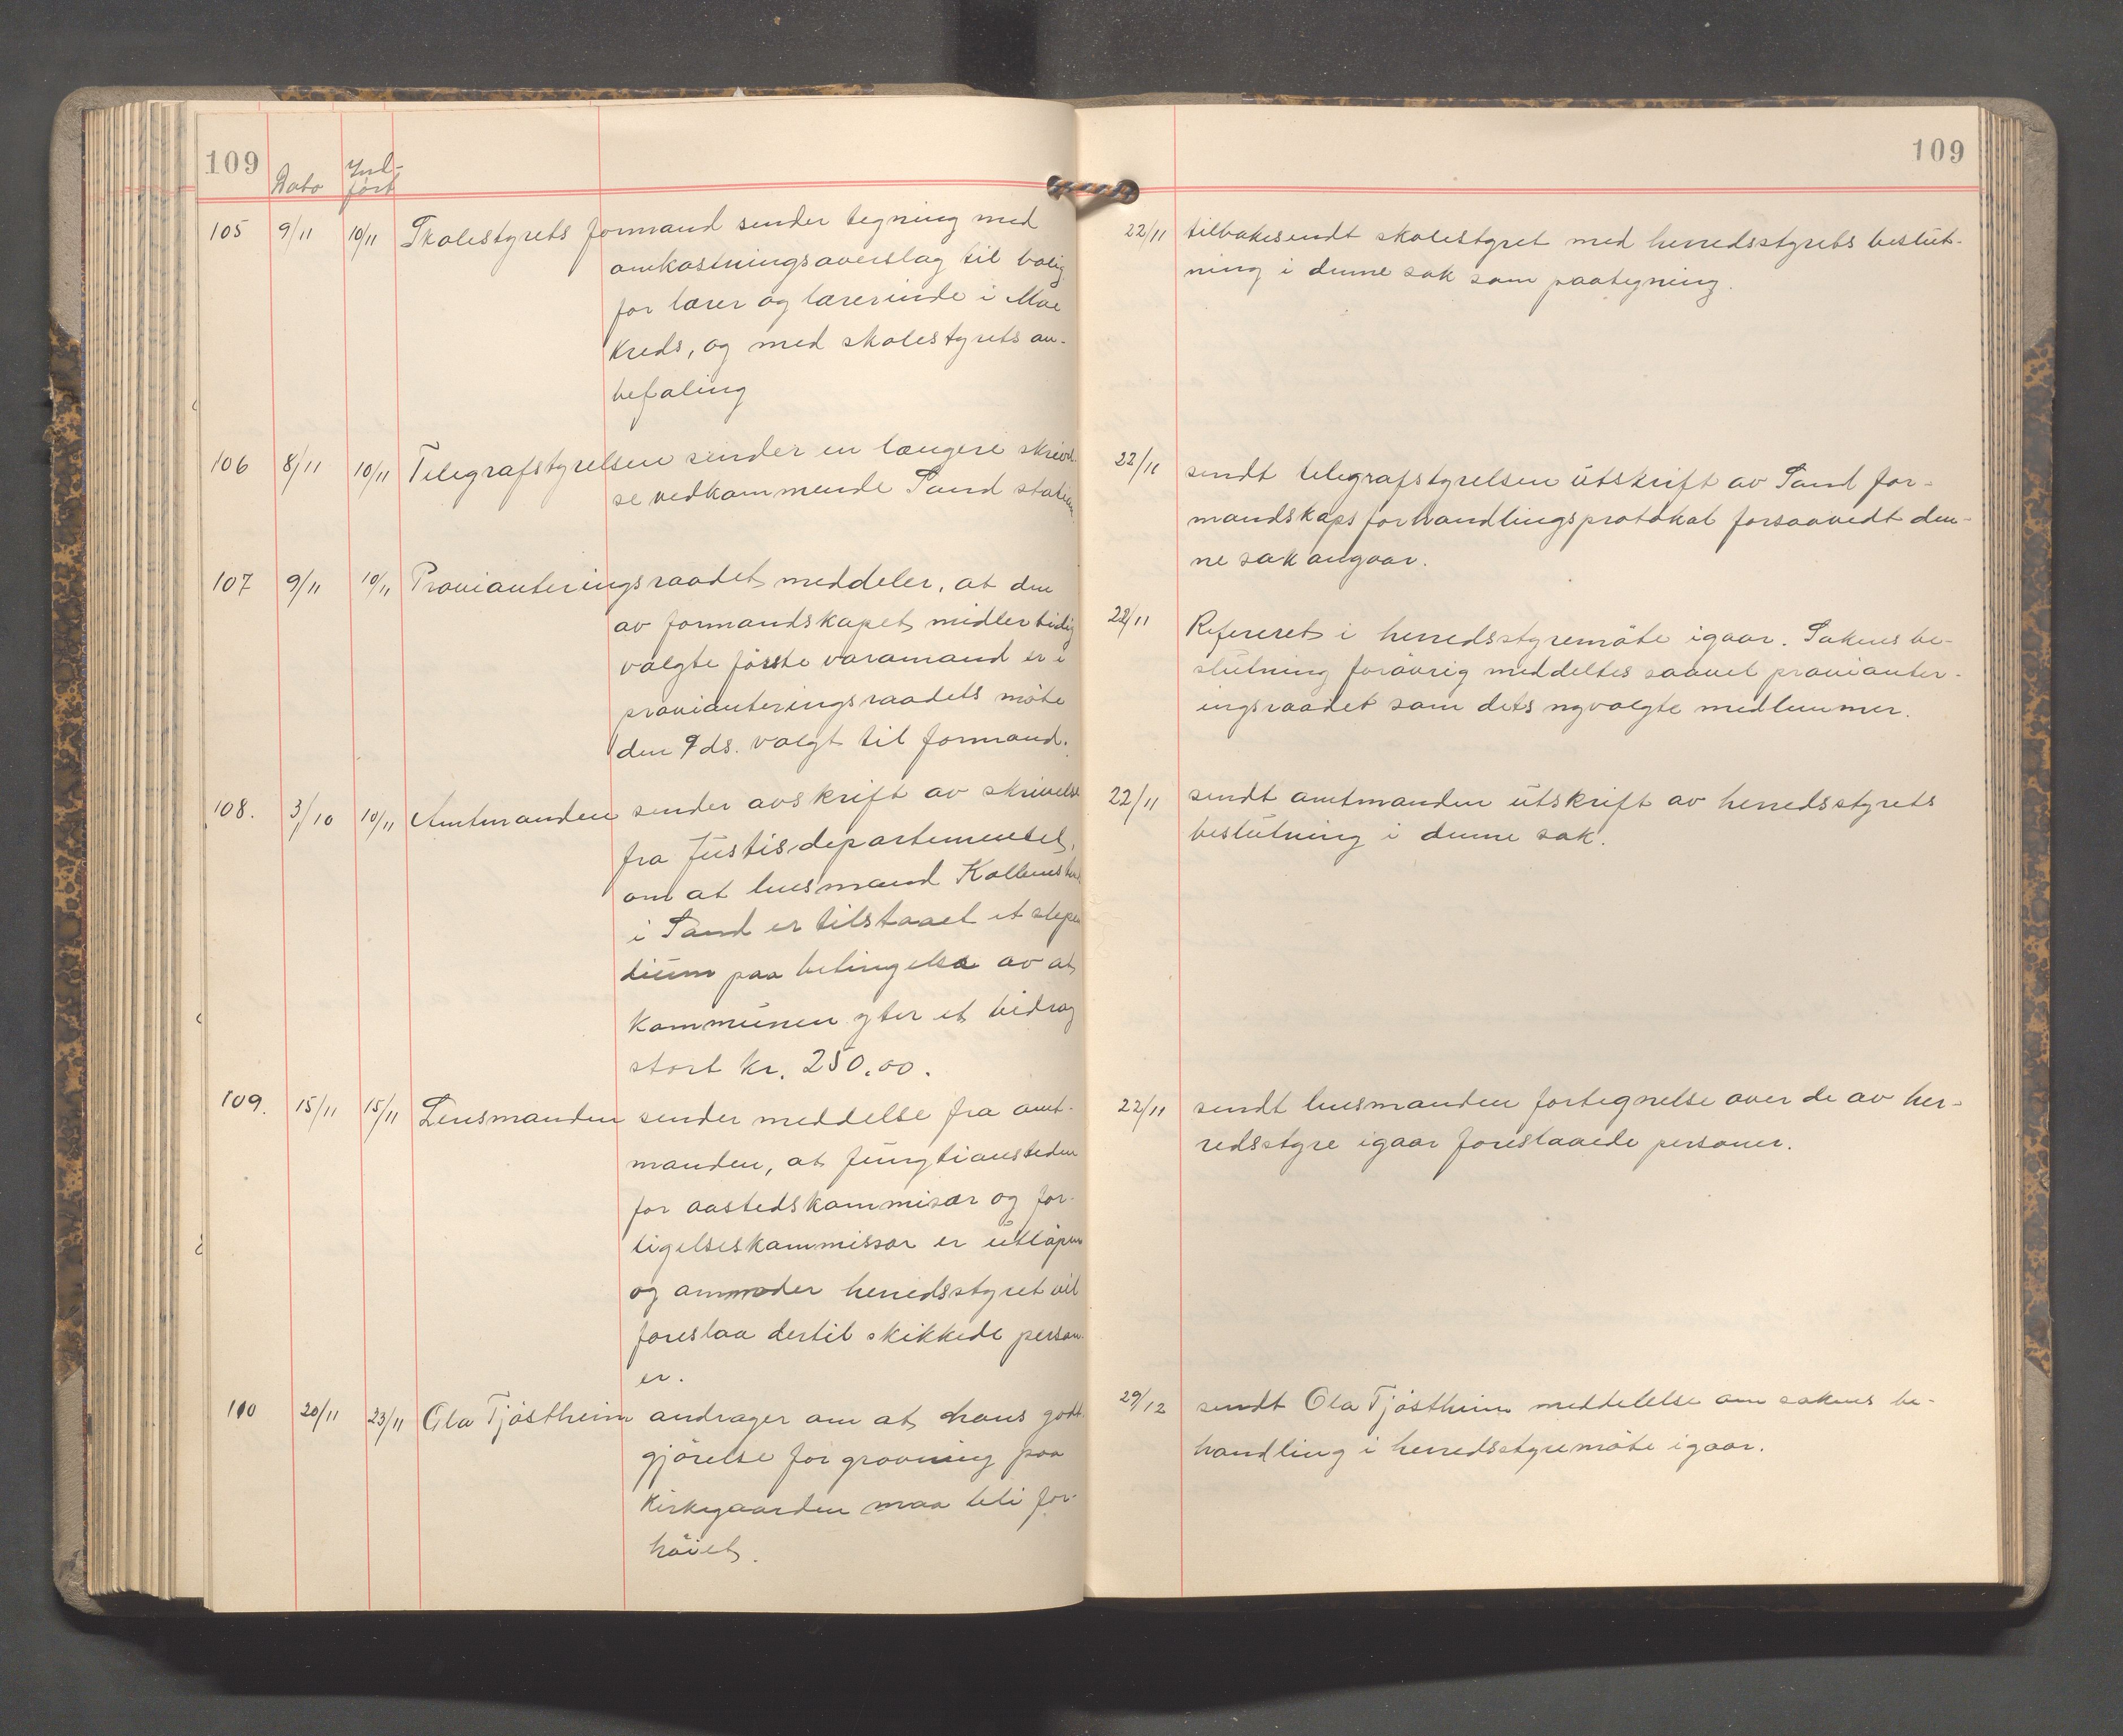 109
Dato
Inl-
ført
105 9/11 10/11 Skolestyrets formand sender tegning med
omkostningsoverslag til bolig
for lærer og lærerinde i Moe
kreds, og med skolestyrets an-
befaling
106 8/11 10/11 Telegrafstyrelsen sender en længere skrivel-
se vedkommende Sand station
107 9/11 10/11 Provianteringsraadet meddeler, at den
av formandskapet midlertidig
valgte første varamand er i
provianteringsraadets møte
den 9 ds. valgt til formand.
108. 3/10 10/11 Amtmanden sender avskrift av skrivelse
fra Justisdepartementet,
om at lensmand
i Sand er tilstaaet et stipen
dium paa betingelse av at
kommunen yter et bidrag
stort kr. 250.00.
109. 15/11 15/11 Lensmanden sender meddelse fra amt-
manden, at
for aastedskommisær og for-
ligelseskommissær er utløpen
og anmoder herredsstyret vil
foreslaa dertil skikkede person-
er.
110 20/11 23/11 Ola Tjøstheim andrager om at hans godt-
gjørelse for gravning paa
kirkegaarden maa bli for-
høiet.
109
22/11 tilbakesendt skolestyret med herredsstyrets beslut-
ning i denne sak som paategning.
22/11 sendt telegrafstyrelsen utskrift av Sand for-
mandskaps forhandlingsprotokol forsaavidt den-
ne sak angaar.
22/11 Refereret i herredsstyremøte igaar. Sakens be-
slutning forøvrig meddeltes saavel provianter-
ingsraadet som dets nyvalgte medlemmer.
22/11 sendt amtmanden utskrift av herredsstyrets
beslutning i denne sak.
22/11 sendt lensmanden fortegnelse over de av her-
redsstyre igaar foreslaaede personer.
29/12 sendt Ola Tjøstheim meddelelse om sakens be-
handling i herredsstyremøte igaar.